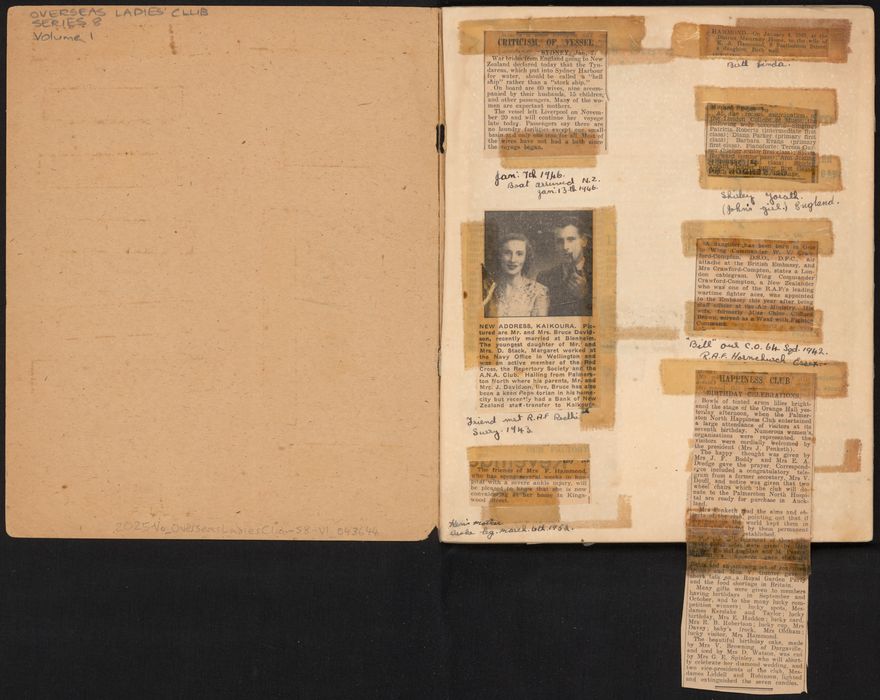 OVERSEAS LADIES' CLUB
SERIES 8
Volume 1
2025-40_OverseasLadiesClub-S8-V1_043644
CRITICISM OF VESSEL
SYDNEY, Jan. 7.
War brides from England going to New
Zealand declared today that the Tyn-
dareus, which put into Sydney Harbour
for water, should be called a "hell
ship" rather than a "stork ship."
On board are 60 wives, nine accom-
panied by their husbands, 15 children,
and other passengers. Many of the wo-
men are expectant mothers.
The vessel left Liverpool on Novem-
ber 20 and will continue her voyage
late today. Passengers say there are
no laundry facilities except one small
basin and only one iron for all. Most of
the wives have not had a bath since
the voyage began.
Jan. 7th 1946.
Boat arrived N.Z.
Jan. 13th 1946.
NEW ADDRESS, KAIKOURA. Pic-
tured are Mr. and Mrs. Bruce David-
son, recently married at Blenheim.
The youngest daughter of Mr. and
Mrs. D. Stack, Margaret worked at
the Navy Office in Wellington and
was an active member of the Red
Cross, the Repertory Society and the
A.N.A. Club. Hailing from Palmers-
ton North where his parents, Mr. and
Mrs. J. Davidson, live, Bruce has also
been a keen Reps torian in his home
city but recently had a Bank of New
Zealand staff-transfer to Kaikoura
Friend met R.A.F. Redhill
Surry. 1943
The friends of Mrs F. Hammond,
who has spent several weeks in hos-
pital with a severe ankle injury, will
be pleased to know that she is now
convalescing at her home in Kings-
wood Street.
mother
broke leg. march. 6th. 1952.
HAMMOND.—On January 4, 1949, at the
District Maternity Home, to the wife of
a daughter. Both well.
Birth Linda.
Patricia Roberts (intermediate first
class); Diana Parker (primary first
class); Barbara Evans (primary
first class). Pianoforte:
Shirley Yorath.
(John's girl.) England.
A daughter has been born in Oslo
to Wing Commander W. V. Craw-
ford-Compton, D.S.O., D.F.C., air
attache at the British Embassy, and
Mrs Crawford-Compton, states a Lon-
don cablegram. Wing Commander
Crawford-Compton, a New Zealander
who was one of the R.A.F.'s leading
wartime fighter aces, was appointed
to the Embassy this year after being
staff officer at the Air Ministry. His
wife, formerly Miss Chloe Clifford
Brown, served as a Waaf with Fighter
Command.
"Bill" our C.O. 64 Sqd. 1942.
R.A.F. Hornchurch Essex.
HAPPINESS CLUB
BIRTHDAY CELEBRATIONS.
Bowls of tinted arum lilies bright-
ened the stage of the Orange Hall yes-
terday afternoon, when the Palmer-
ston North Happiness Club entertained
a large attendance of visitors at its
seventh birthday. Numerous women's
organisations were represented, the
visitors were cordially welcomed by
the president (Mrs J. Penketh).
The happy thought was given by
Mrs J. F. Boddy and Mrs E. A.
Dredge gave the prayer. Correspond-
ence included a congratulatory tele-
gram from a former secretary, Mrs V.
Doull, and notice was given that two
wheel chairs which the club will do-
nate to the Palmerston North Hospi-
tal are ready for purchase in Auck-
land.
Mrs Penketh read the aims and ob-
pointing out that if
world kept them in
be them permanent
established.
short talk on a Royal Garden Party
and the food shortage in Britain.
Many gifts were given to members
having birthdays in September and
October, and to the many lucky com-
petition winners; lucky spots, Mes-
dames Kerslake and Taylor; lucky
birthday, Mrs E. Haddon; lucky card,
Mrs R. B. Robertson; lucky cup, Mrs
Davey; baby's frock, Mrs Oldham;
lucky visitor, Mrs Hammond.
The beautiful birthday cake, made
by Mrs V. Browning, of Dargaville,
and iced by Mrs D. Watson, was cut
by Mrs G. E. Spinley, who will short-
ly celebrate her diamond wedding, and
two vice-presidents of the club, Mes-
dames Liddell and Robinson, lighted
and extinguished the seven candles.